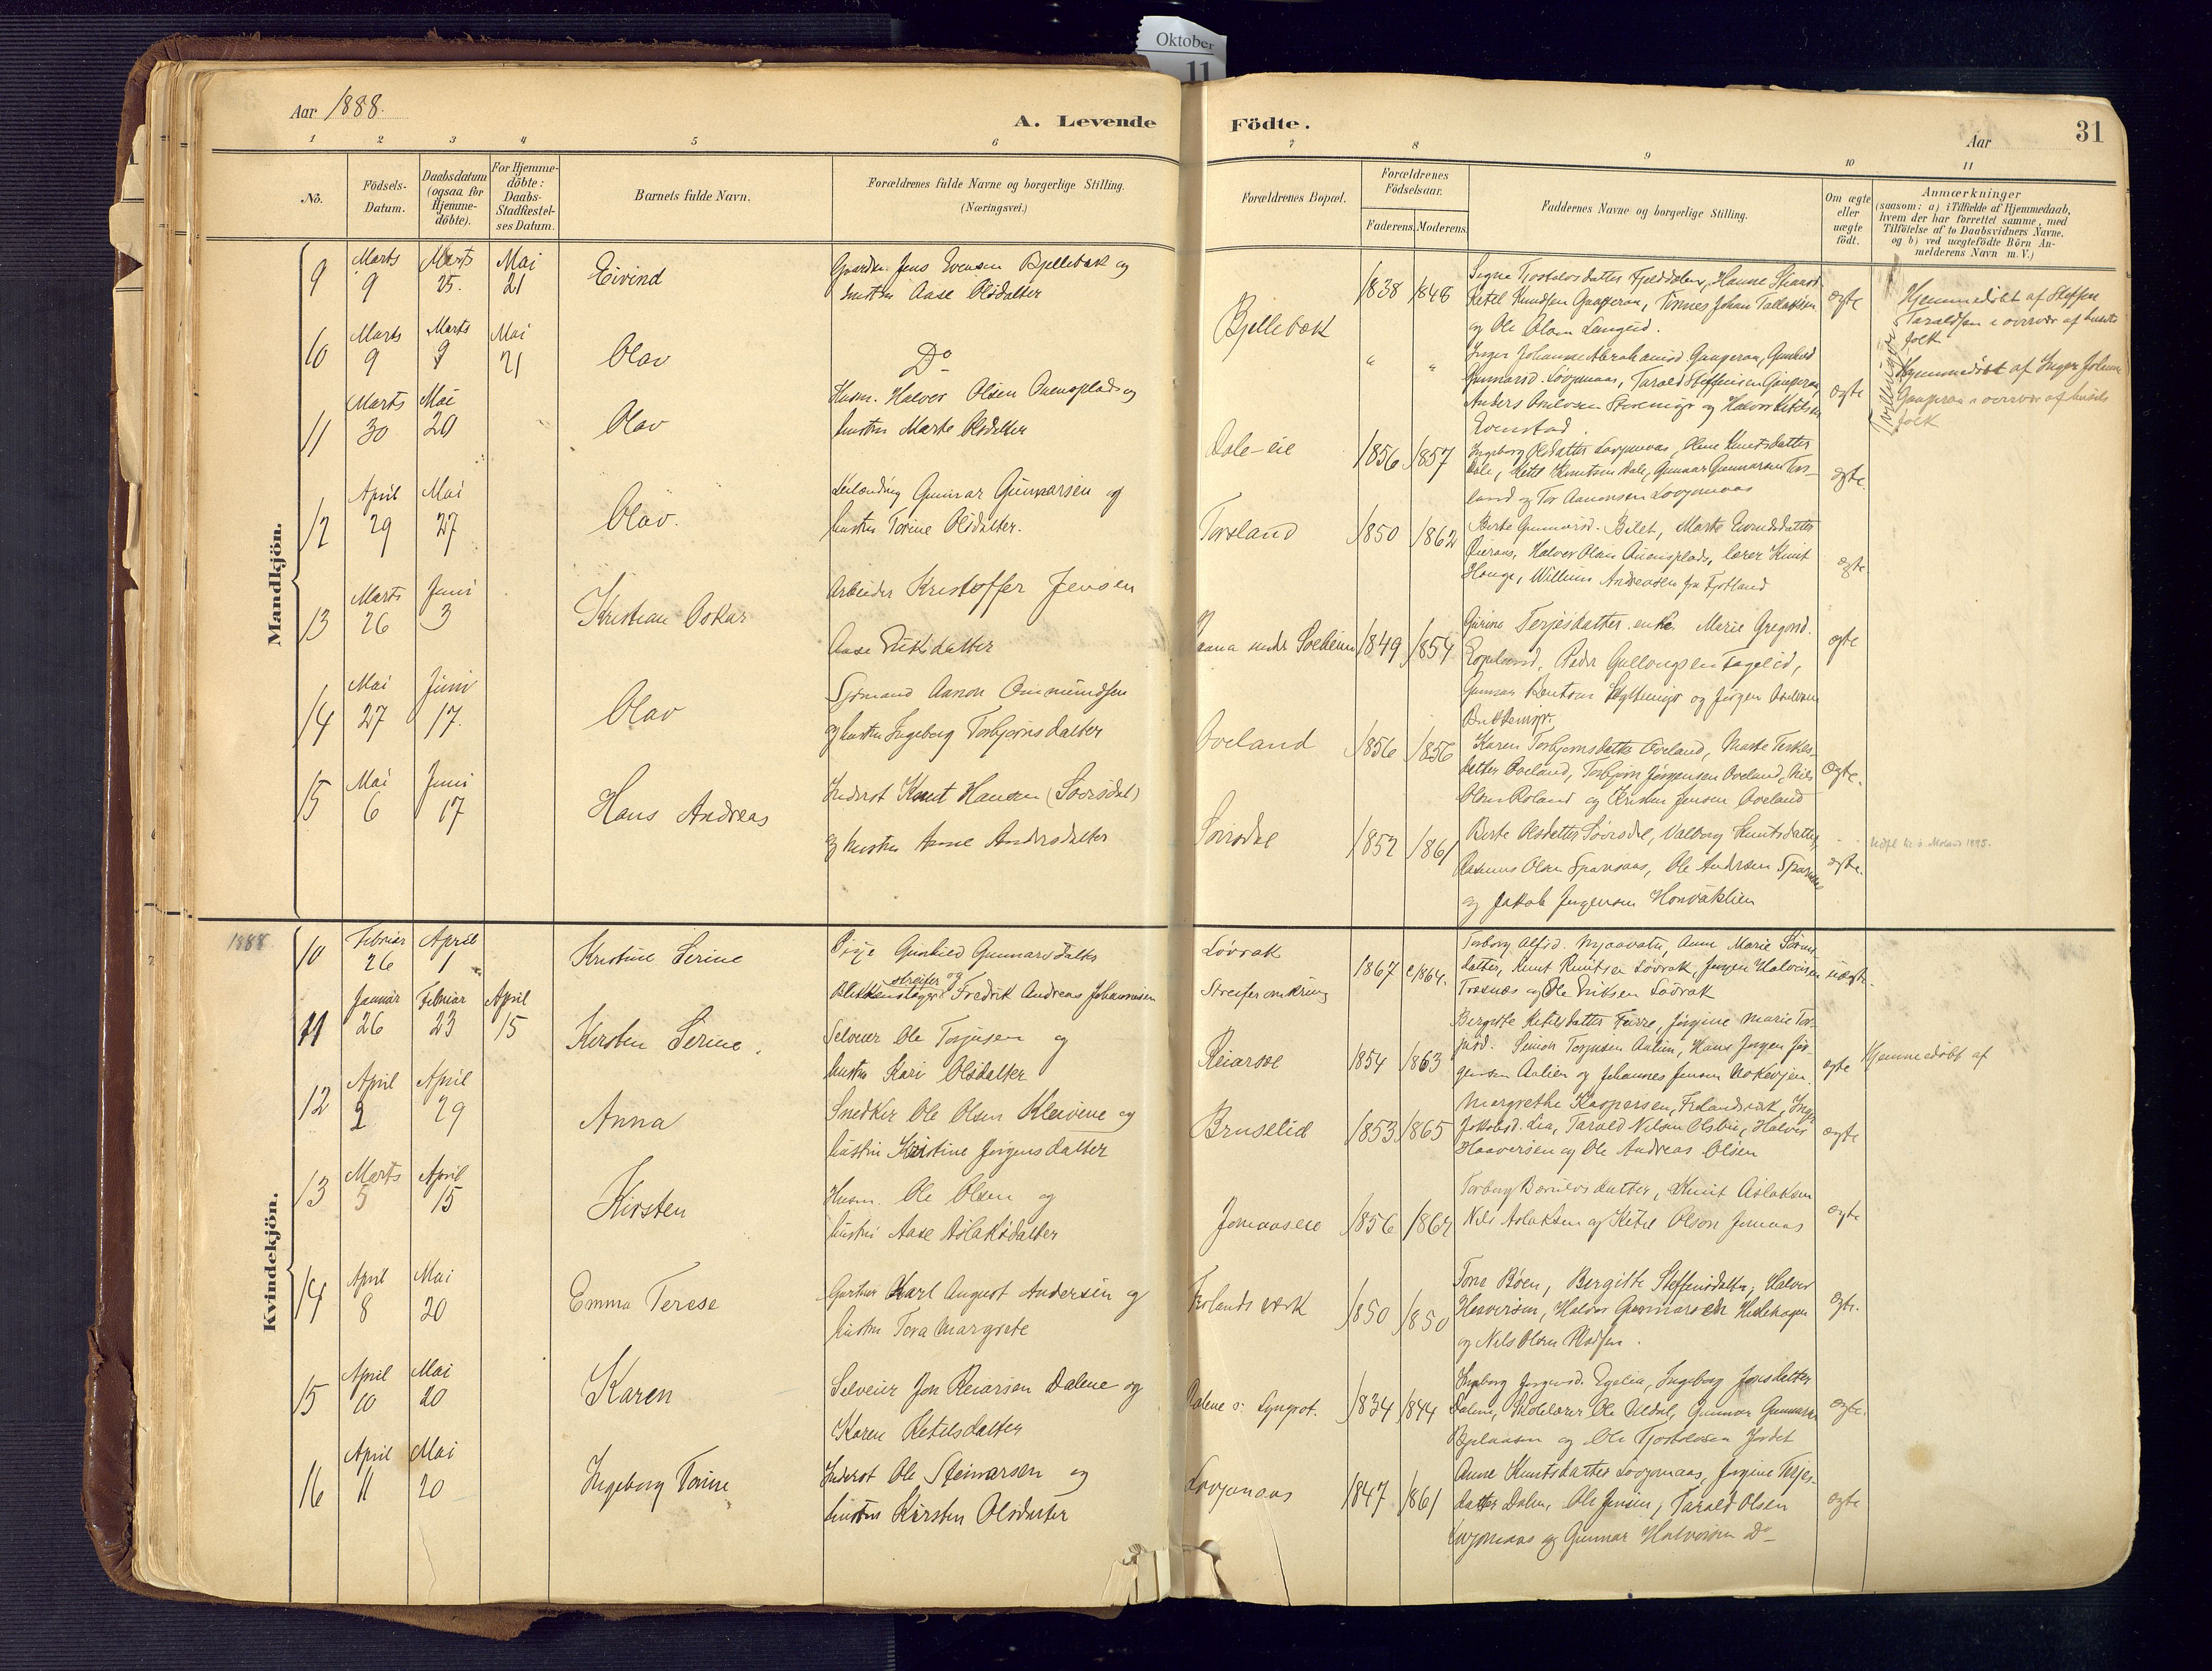 Oktober
11
Aar 1888.
A. Levende
Födte.
Aar
31
1 2 3 4 5 6 7 8 9 10 11
No.
Födsels-
Datum.
Daabsdatum
(ogsaa for
Hjemme-
döbte).
For Hjemme-
döbte:
Daabs-
Stadfæstel-
ses Datum.
Barnets fulde Navn.
Forældrenes fulde Navne og borgerlige Stilling.
(Næringsvei.)
Forældrenes Bopæl.
Forældrenes
Födselsaar.
Faderens. Moderens.
Faddernes Navne og borgerlige Stilling.
Om ægte
eller
uægte
födt.
Anmærkninger
(saasom: a) i Tilfælde af Hjemmedaab,
hvem der har forrettet samme, med
Tilföielse af to Daabsvidners Navne.
og b) ved uægtefödte Börn An-
melderens Navn m. V.)
Mandkjön.
9 Marts 9 Marts 25. Mai 21 Eivind
Gaardbr. Jens Evensen Bjellebæk og
hustru Aase Olsdatter
Bjellebæk 1838 1848
Ketel Knudsen
og Ole Olsen
ægte
Hjemmedöbt af Steffen
Taraldsen i overvær af husets
folk
10 Marts 9 Marts 9 Mai 21 Olav
Do
" "
Inger Johanne Abrahamsd. Gauperaa,
Gunnarsd. Lövjomaas, Tarald Steffensen Gauperaa,
Anders og Halvor Ketilsen
Evenstad.
ægte
Tvillinger
Hjemmedöbt af Inger Johanne
Gauperaa i overvær af husets
folk
11 Marts 30 Mai 20 Olav
Husm. Halvor Olsen Ouensplads og
hustru Marte Olsdatter
Dale-eie 1856 1857
Ingeborg Olsdatter Lovjomaas, Olene Knutsdatter
Dale, Ketil Knutsen Dale, Gunnar Gunnarsen Tors-
land og Tor Aanonsen Lovjomaas
ægte.
12 April 29 Mai 27 Olav.
Leilænding Gunnar Gunnarsen og
hustru Torine Olsdatter.
Torsland 1850 1862
Berte Gunnarsd. Bilet, Marte
Halvor Olsen Ouensplads, lærer Knut
Hauge, Willum Andreassen fra Fjotland
ægte.
13 Marts 26 Juni 3 Kristian Oskar
Arbeider Kristoffer Jensen
Aase Eriksdatter
under Solheim 1849 1854
Gurine Terjesdatter enke Marie Gregersd.
Peder Gullougsen Fagelid,
Gunnar Knutsen og Jörgen
ægte
14 Mai 27 Juni 17. Olav
Sjömand Aanon Ommundsen
og hustru Ingeborg Torbjörnsdatter
Oveland 1856 1856
Karen Torbjörnsdatter Oveland, Marte Terkels-
datter Oveland, Torbjörn Jörgensen Oveland, Nils
Olsen Roland og Kristen Jensen Oveland
ægte.
15 Mai 6 Juni 17 Hans Andreas
Inderst Knut Hansen (Sövrsdal)
og hustru Anne Andersdatter
Sövrsdal 1852 1861
Berte Olsdatter Sövrsdal, Valborg Knutsdatter,
Rasmus Olsen Spansaas, Ole Andersen Spansaas
og Jakob Jörgensen
ægte.
Moland 1895.
1888
Kvindekjön.
10 Februar 26 April 1 Kristine Serine
Pige Gunhild Gunnarsdatter
og
streifer
Blikkenslager Fredrik Andreas Johannesen
Lövrak
Streifer omkring
1867 c1864.
Torborg Alfsd. Mjaavatn, Anne Marie
datter, Knut Knutsen Lövrak, Jörgen Halvorsen
Træsnæs og Ole Eriksen Lövrak
uægte.
11 Januar 26 Februar 23 April 15 Kirsten Serine.
Selveier Ole Torjusen og
hustru Kari Olsdatter
Reiarsöe 1854 1863
Bergitte Ketilsdatter Furre, Jörgine Marie Tor-
jusd. Simon Torjusen Aalien, Hans Jörgen Jör-
gensen Aalien og Johannes Jensen
ægte
Hjemmedöbt af
12 April 2 April 29 Anna
Snedker Ole Olsen Kleivene og
hustru Kristine Jörgensdatter
Bruselid 1853 1865
Margrethe Kaspersen, Frolandsværk, Inger
Jakobsd. Lia, Tarald Nilsen Olsbu, Halvor
Haaversen og Ole Andreas Olsen
ægte
13 Marts 5 April 15 Kirsten
Husm. Ole Olsen og
hustru Aase Aslaksdatter
Jomaaseie 1856 1864
Torborg datter, Knut Aslaksen
Nils Aslaksen og Ketel Olson Jomaas
ægte
14 April 8 Mai 20 Emma Terese
Gartner Karl August Andersen og
hustru Tora Margrete
Frolands værk 1850 1850
Tone Böen, Bergitte Steffensdatter, Halvor
Haaversen, Halvor Gunnarsen
og Nils Olsen
ægte.
15 April 10 Mai 20 Karen
Selveier Jon Reiarsen Dalene og
Karen Ketilsdatter
Dalene 1834 1844
Ingeborg Jörgensd. Egelia, Ingeborg Jonsdatter
Dalene, Skolelærer Ole Gunnar Gunnars.
og Ole Tjostolvsen Jordet
ægte.
16 April 11 Mai 20 Ingeborg Tomine
Inderst Ole Steinarsen og
hustru Kirsten Olsdatter
Lovjomaas 1847 1861
Anne Knutsdatter Lovjomaas, Jörgine Terjes-
datter Dalen, Ole Jensen, Tarald Olsen
Lovjomaas og Gunnar Halvorsen Do
ægte